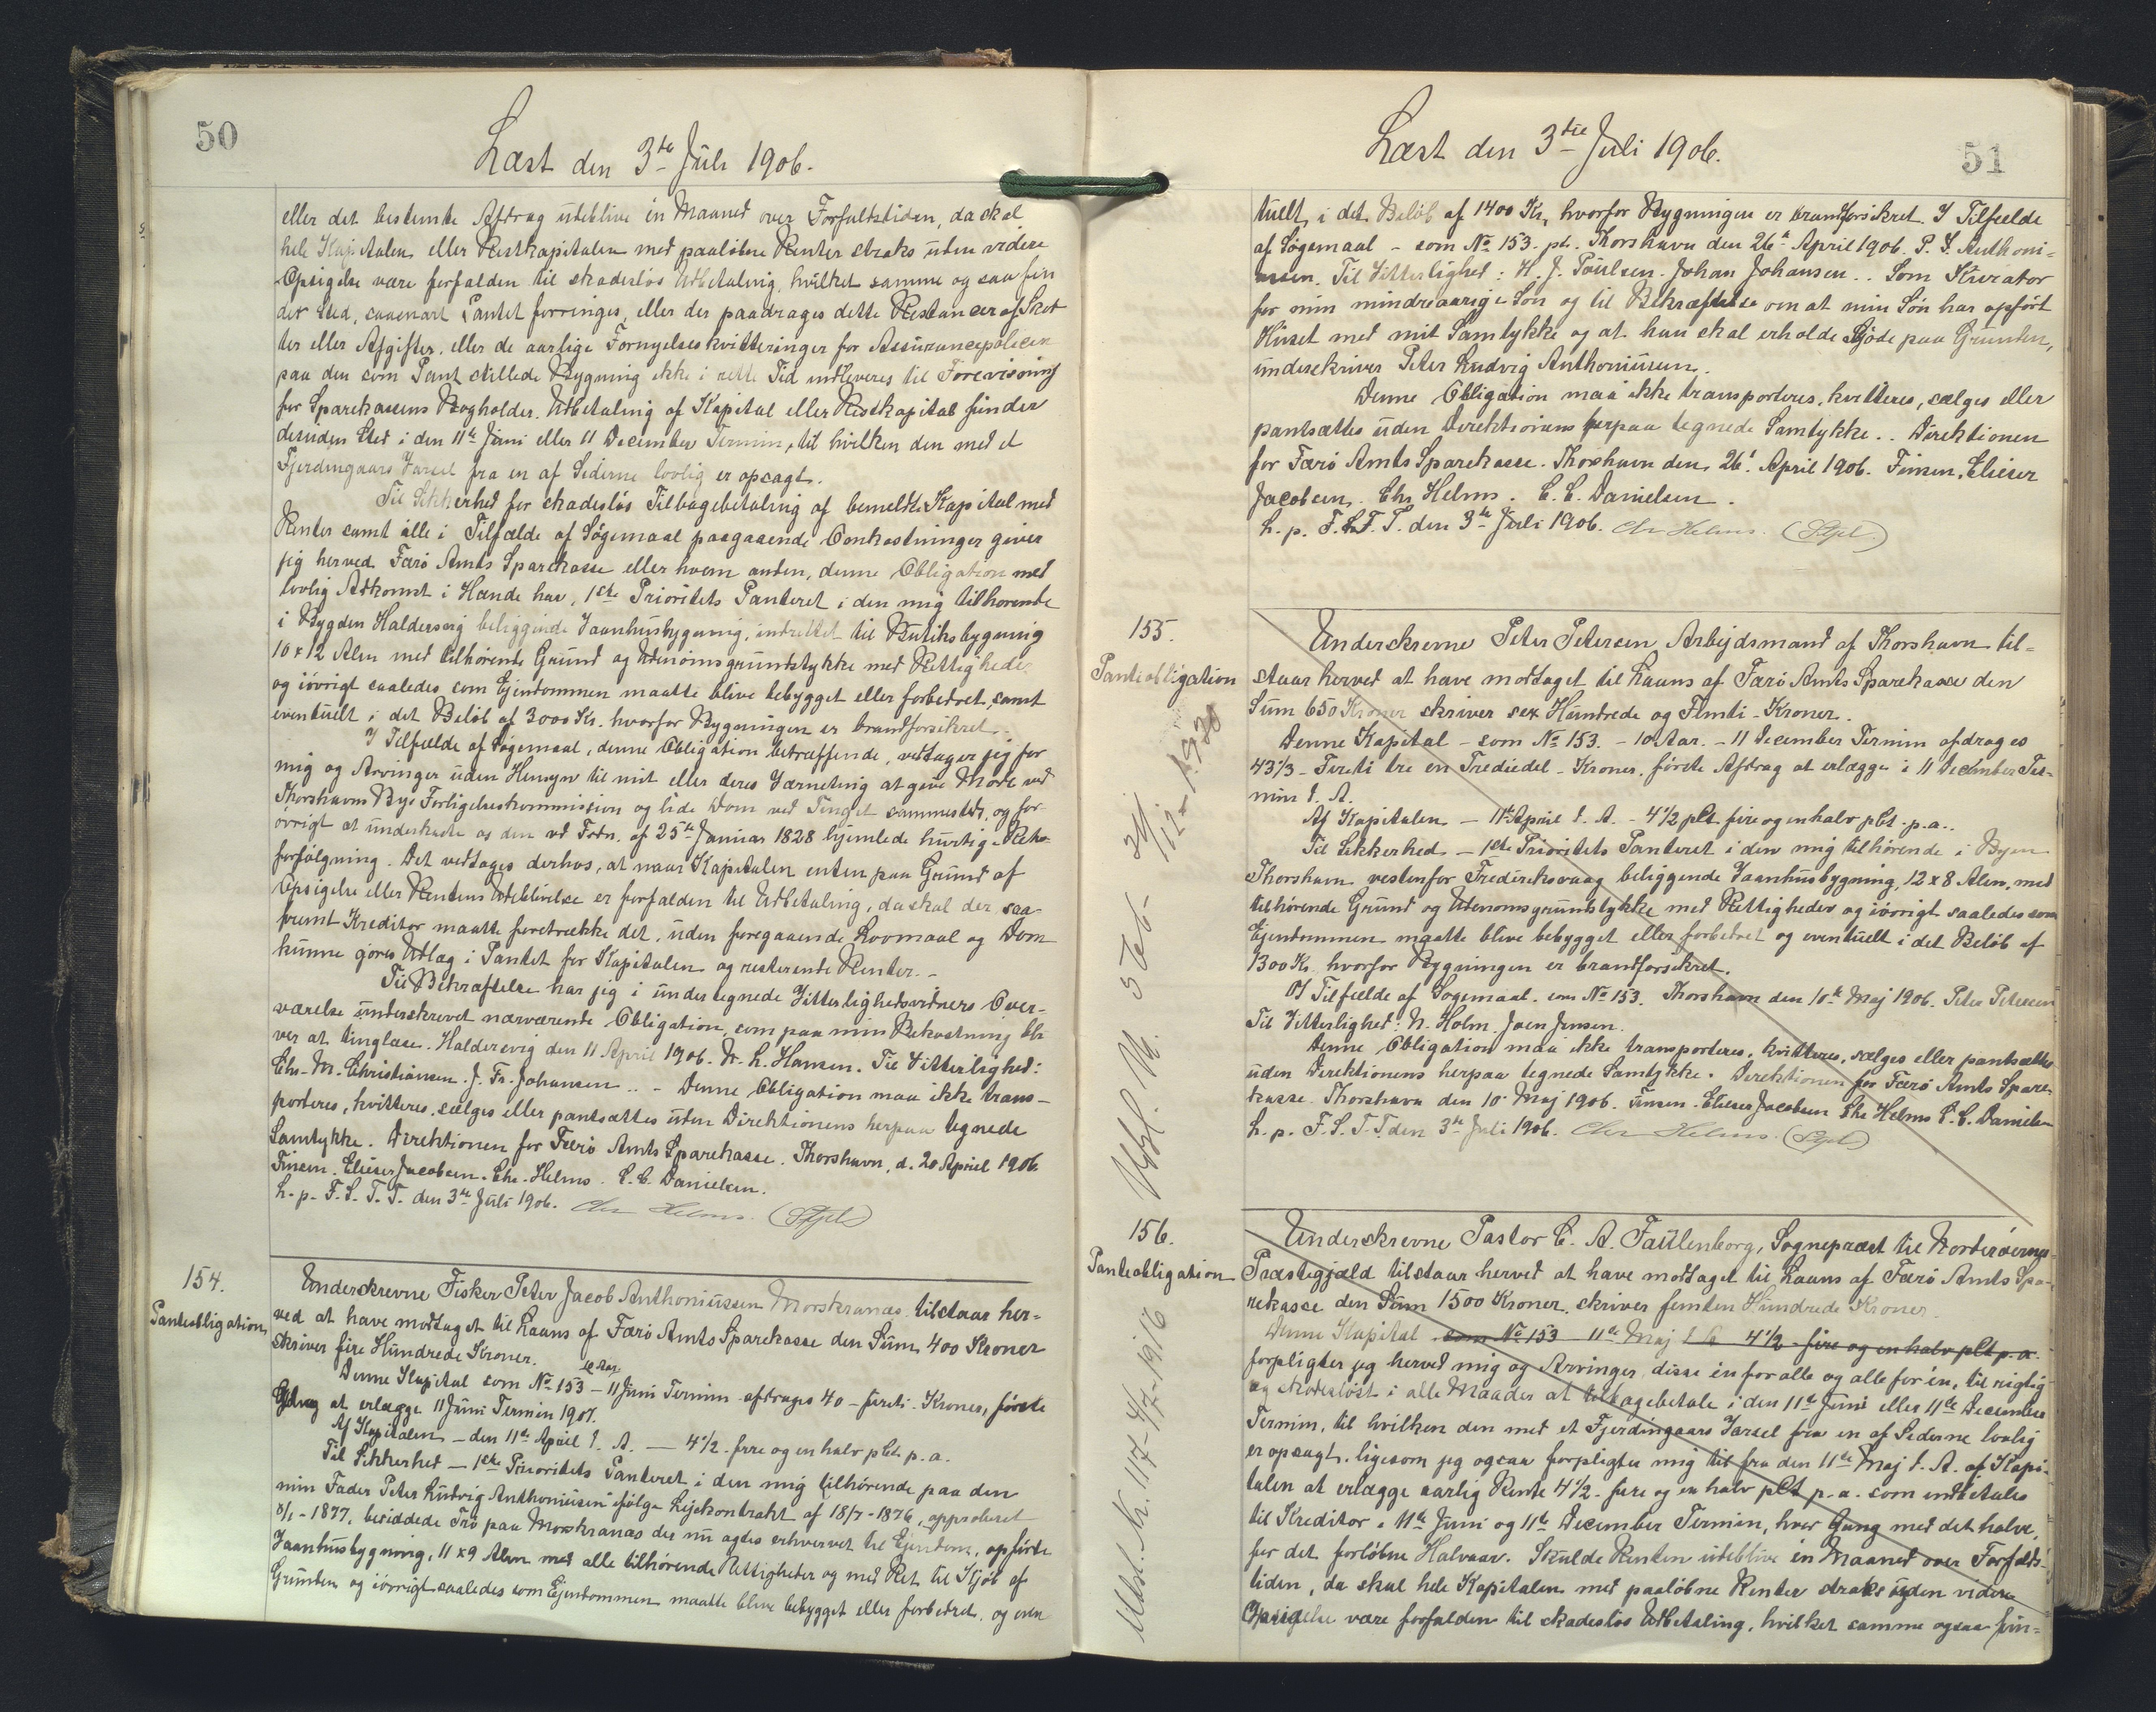 50
Læst den 3die Juli 1906.
eller det bestemte Afdrag udeblive én Maaned over Forfaldstiden, da skal
hele Kapitalen eller Restkapitalen med paaløbne Renter straks uden videre
Opsigelse være forfalden til skadesløs Udbetaling, hvilket samme og saa fin
der Sted, saasnart Pantet forringes, eller der paadrages dette Restancer af Skat
ter eller Afgifter, eller de aarlige Fornyelseskvitteringer for Assurancepolicen
paa den som Pant stillede Bygning ikke i rette Tid indleveres til Forevisning
for Sparekassens Bogholder. Udbetaling af Kapital eller Restkapital finder
desuden Sted i den 11te Juni eller 11 December Termin, til hvilken den med et
Fjerdingaars Varsel fra en af Siderne lovlig er opsagt.
Til Sikkerhed for skadesløs Tilbagebetaling af bemeldte Kapital med
Renter samt alle i Tilfælde af Søgemaal paagaaende Omkostninger giver
jeg herved Færø Amts Sparekasse eller hvem anden, denne Obligation med
lovlig Adkomst i Hænde har, 1ste Prioritets Panteret i den mig tilhørende
i Bygden Haldersvig beliggende Vaanhusbygning, indrettet til Butiksbygning
10 x 12 Alen med tilhørende Grund og Udenomsgrundstykke med Rettigheder
og iøvrigt saaledes som Ejendommen maatte blive bebygget eller forbedret, samt
eventuelt i det Beløb af 3000 Kr. hvorfor Bygningen er brandforsikret.
I Tilfælde af Søgemaal, denne Obligation betræffende, vedtager jeg for
mig og Arvinger uden Hensyn til mit eller deres Værneting at give Møde ved
Thorshavns Bys Forligelseskommission og lide Dom ved Tinget sammesteds, og for
øvrigt at underkaste os den ved Frdn. af 25de Januar 1828 hjemlede hurtig Rets-
forfølgning. Det vedtages derhos, at naar Kapitalen enten paa Grund af
Opsigelse eller Rentens Udeblivelse er forfalden til Udbetaling, da skal der, saa
fremt Kreditor maatte foretrække det, uden foregaaende Lovmaal og Dom
kunne gøres Udlæg i Pantet for Kapitalen og resterende Renter. -
Til Bekræftelse har jeg i undertegnede Vitterlighedsvidners Over-
værelse underskrevet nærværende Obligation, som paa min Bekostning bli
ver at tinglæse. Haldersvig den 11 April 1906. N. L. Hansen. Til Vitterlighed:
Chr. M. Christiansen. J. Fr. Johansen .. - Denne Obligation maa ikke trans-
porteres, kvitteres, sælges eller pantsættes uden Direktionens herpaa tegnede
Samtykke. Direktionen for Færø Amts Sparekasse. Thorshavn, d. 20 April 1906
Finsen. Elieser Jacobsen. Chr. Helms. E. C. Danielsen.
L. p. F. S. T. T. den 3die Juli 1906. Chr Helms. (Stpl.)
154.
Panteobligation
Underskrevne Fisker Peter Jacob Anthoniussen Morskranæs tilstaar her-
ved at have modtaget til Laans af Færø Amts Sparekasse den Sum 400 Kroner
skriver fire Hundrede Kroner.
10 Aar
Denne Kapital som No 153 - 11 Juni Termin afdrages 40 - fyreti - Kroner, første
Afdrag at erlægge 11 Juni Termin 1907.
Af Kapitalen - den 11te April d. A. - 4 1/2 - fire og en halv pCt. p. a.
Til Sikkerhed - 1ste Prioritets Panteret i den mig tilhørende paa den
min Fader Peter Ludvig Anthoniusen ifølge Lejekontrakt af 18/7-1876, approberet
8/1-1877, besiddede Trø paa Morskranæs der nu agtes erhvervet til Ejendom, opførte
Vaanhusbygning, 11 x 9 Alen med alle tilhørende Rettigheder og med Ret til Kjøb af
Grunden og iøvrigt saaledes som Ejendommen maatte blive bebygget eller forbedret, og even
51
Læst den 3die Juli 1906.
tuelt i det Beløb af 1400 Kr, hvorfor Bygningen er brandforsikret. I Tilfælde
af Søgemaal - som No 153. pt. Thorshavn den 26de April 1906. P. J. Anthoni-
ussen. Til Vitterlighed: H. J. Poulsen. Johan Johansen .. Som Kurator
for min mindreaarige Søn og til Bekræftelse om at min Søn har opført
Huset med mit Samtykke og at han skal erholde Skjøde paa Grunden,
underskriver Peter Ludvig Anthoniussen.
Denne Obligation maa ikke transporteres, kvitteres, sælges eller
pantsættes uden Direktionens herpaa tegnede Samtykke .. Direktionen
for Færø Amts Sparekasse. Thorshavn den, 26' April 1906. Finsen, Elieser
Jacobsen. Chr Helms. E. C. Danielsen.
L. p. F. S. T. T. den 3die Juli 1906. Chr Helms. (Stpl.)
155.
Panteobligation
Underskrevne Peter Petersen, Arbejdsmand af Thorshavn til-
staar herved at have modtaget til Laans af Færø Amts Sparekasse den
Sum 650 Kroner skriver sex Hundrede og Femti - Kroner.
Denne Kapital - som No 153. - 10 Aar. - 11 December Termin afdrages
43 1/3 - Fireti tre en Trediedel - Kroner, første Afdrag at erlægge i 11 December Ter-
min d. A.
Af Kapitalen - 11te April d. A. - 4 1/2 pCt. fire og en halv pCt. p. a..
Til Sikkerhed - 1ste Prioritets Panteret i den mig tilhørende i Byen
Thorshavn vestenfor Frederiksvaag beliggende Vaanhusbygning, 12 x 8 Alen, med
tilhørende Grund og Udenomsgrundstykke med Rettigheder og iøvrigt saaledes som
Ejendommen maatte blive bebygget eller forbedret og eventuelt i det Beløb af
1300 Kr. hvorfor Bygningen er brandforsikret.
I Tilfælde af Søgemaal. som No 153. Thorshavn den 10de Maj 1906. Peter Petersen
Til Vitterlighed: N. Holm. Joen Jensen.
Denne Obligation maa ikke transporteres, kvitteres, sælges eller pantsættes
uden Direktionens herpaa tegnede Samtykke. Direktionen for Færø Amts Spare-
kasse. Thorshavn den 10. Maj 1906. Finsen. Elieser Jacobsen Chr Helms E. C. Danielsen
L. p. F. S. T. T. den 3die Juli 1906. Chr Helms. (Stpl)
156.
Panteobligation
Underskrevne Pastor C. A. Faulenborg, Sognepræst til Norderøernes
Præstegjæld tilstaar herved at have modtaget til Laans af Færø Amts Spa-
rekasse den Sum 1500 Kroner, skriver femten Hundrede Kroner
Denne Kapital som No 153 11te Maj d. A. 4 1/2 - fire og en halv pCt p. a.
forpligter jeg herved mig og Arvinger, disse én for alle og alle for én, til rigtig
og skadesløst i alle Maader at tilbagebetale i den 11te Juni eller 11te December
Termin, til hvilken den med et Fjerdingaars Varsel fra en af Siderne lovlig
er opsagt, ligesom jeg ogsaa forpligter mig til fra den 11te Maj d. A. af Kapi-
talen at erlægge aarlig Rente 4 1/2 - fire og en halv pCt p. a. som indbetales
til Kreditor i 11te Juni og 11te December Termin, hver Gang med det halve,
for det forløbne Halvaar. Skulde Renten udeblive én Maaned over Forfalds-
tiden, da skal hele Kapitalen med paaløbne Renter straks uden videre
Opsigelse være forfalden til skadesløs Udbetaling, hvilket samme ogsaa fin-